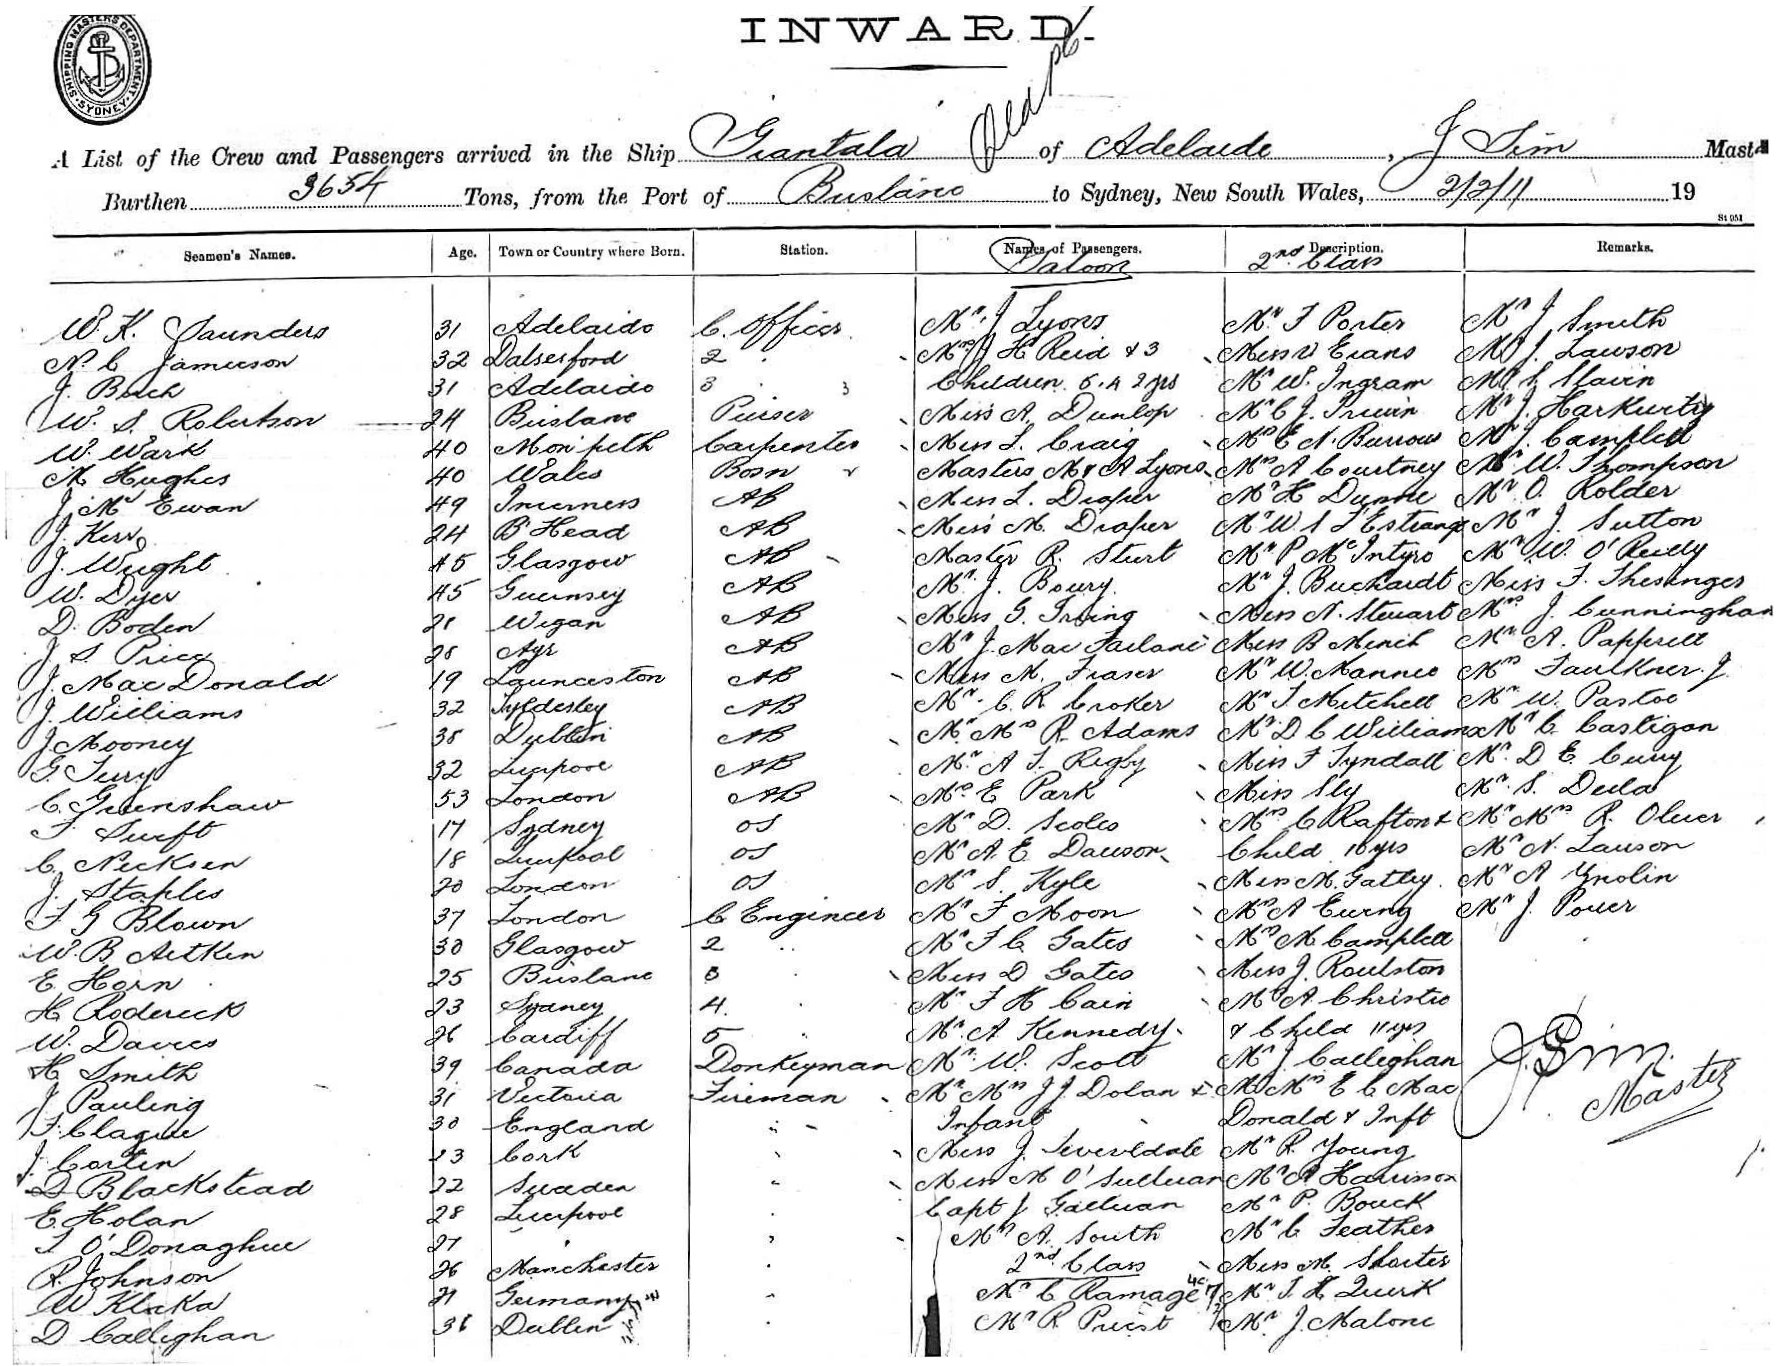 INWARD.
SHIPPING MASTERS DEPARTMENT SYDNEY
A List of the Crew and Passengers arrived in the Ship Grantala of Adelaide, J Sim Mast
Burthen 3654 Tons, from the Port of Brisbane to Sydney, New South Wales, 2/2/11 19
St 051
Seamen's Names. Age. Town or Country where Born. Station. Names of Passengers. Description. Remarks.
Saloon 2nd Class
W. K. Saunders 31 Adelaide C. Officer Mr. J Lyons Mr. F Porter Mr J Smith
N. C Jamieson 32 Dalserford 2 " Mrs J H Reid & 3 Miss V Evans Mr J. Lawson
J. Bach 31 Adelaide 3 " Children 5. 4 2 yrs Mr W. Ingram Mr S Slavin
W. S. Robertson 24 Brisbane Purser Miss A. Dunlop Mr C J. Irwin Mr J. Harkurty
W. Wark 40 Morpeth Carpenter Miss L. Craig Mrs E N. Burrows Mr J. Campbell
M Hughes 40 Wales Bosn Masters M & A Lyons Mrs A Courtney Mr W. Thompson
J. Mc Ewan 49 Inverness AB Miss L. Draper Mr H Dunne Mr O. Rolder
J. Kerr 24 B'Head AB Miss M. Draper Mr W S L'Estrange Mr J. Sutton
J. Wright 45 Glasgow AB Master R. Sturt Mr P McIntyre Mr W. O'Reilly
W. Dyer 45 Guernsey AB Mr. J. Boury Mr J. Buchardt Miss F. Thesinger
D. Boden 28 Wigan AB Miss G. Irving Miss N. Stewart Mrs J. Cunningham
J. S. Price 28 Ayr AB Mr J. Mac Farlane Miss B Minch Mr A. Papprell
J. MacDonald 19 Launceston AB Miss M. Fraser Mr W. Mannie Mrs Faulkner. J.
J. Williams 32 Tyldesley AB Mr. C. R. Croker Mr T Mitchell Mr W. Pastoe
J Mooney 38 Dublin AB Mr. Mrs R. Adams Mr. D C Williams Mr C. Castigan
G. Terry 32 Liverpool AB Mr. A T. Rigby Miss F Tyndall Mr. D E. Curry
C. Greenshaw 53 London AB Mrs E Park Miss Sly Mr. S. Deila
F Swift 17 Sydney OS Mr D. Scoles Mrs C Rafton & Mr Mrs R. Oliver
C. Neckson 18 Liverpool OS Mr A. E Dawson Child 10 yrs Mr N. Lawson
J. Staples 20 London OS Mr S. Kyle Miss M. Gatley Mr A Ynolin
F G Blown 37 London C Engineer Mr F Moon Mrs A Ewing Mr J. Power
W. B Aitken 30 Glasgow 2 " Mr F C Gates Mrs M Campbell
E Horn 25 Brisbane 3 " Miss D Gates Miss J. Roulston
H Roderick 23 Sydney 4. " Mr F H Cain Mrs A Christie
W. Davies 26 Cardiff 5 " Mr. A Kennedy & Child 11 yrs
H Smith 39 Canada Donkeyman Mr. W. Scott Mr J. Calleghan
J Pauling 31 Victoria Fireman Mr Mrs J J. Dolan & Mr Mrs E C Mac
F. Clague 30 England " Infant Donald & Inft
J. Carten 23 Cork " Miss J. Mr R. Young
D Blackstead 22 Sweden " Miss M O'Sullivan Mr A Harrisson
E. Holan 28 Liverpool " Capt J Gallivan Mr P. Bouck
T O'Donaghue 27 " " Mrs A. South Mr C Feather
R. Johnson 26 Manchester " 2nd Class Miss M. Shorter
W Kluka 21 Germany " Mr C Ramage Mr T. H Quirk
D Calleghan 36 Dublin " Mr R Priest Mr. J. Malone
J. Sim.
Master